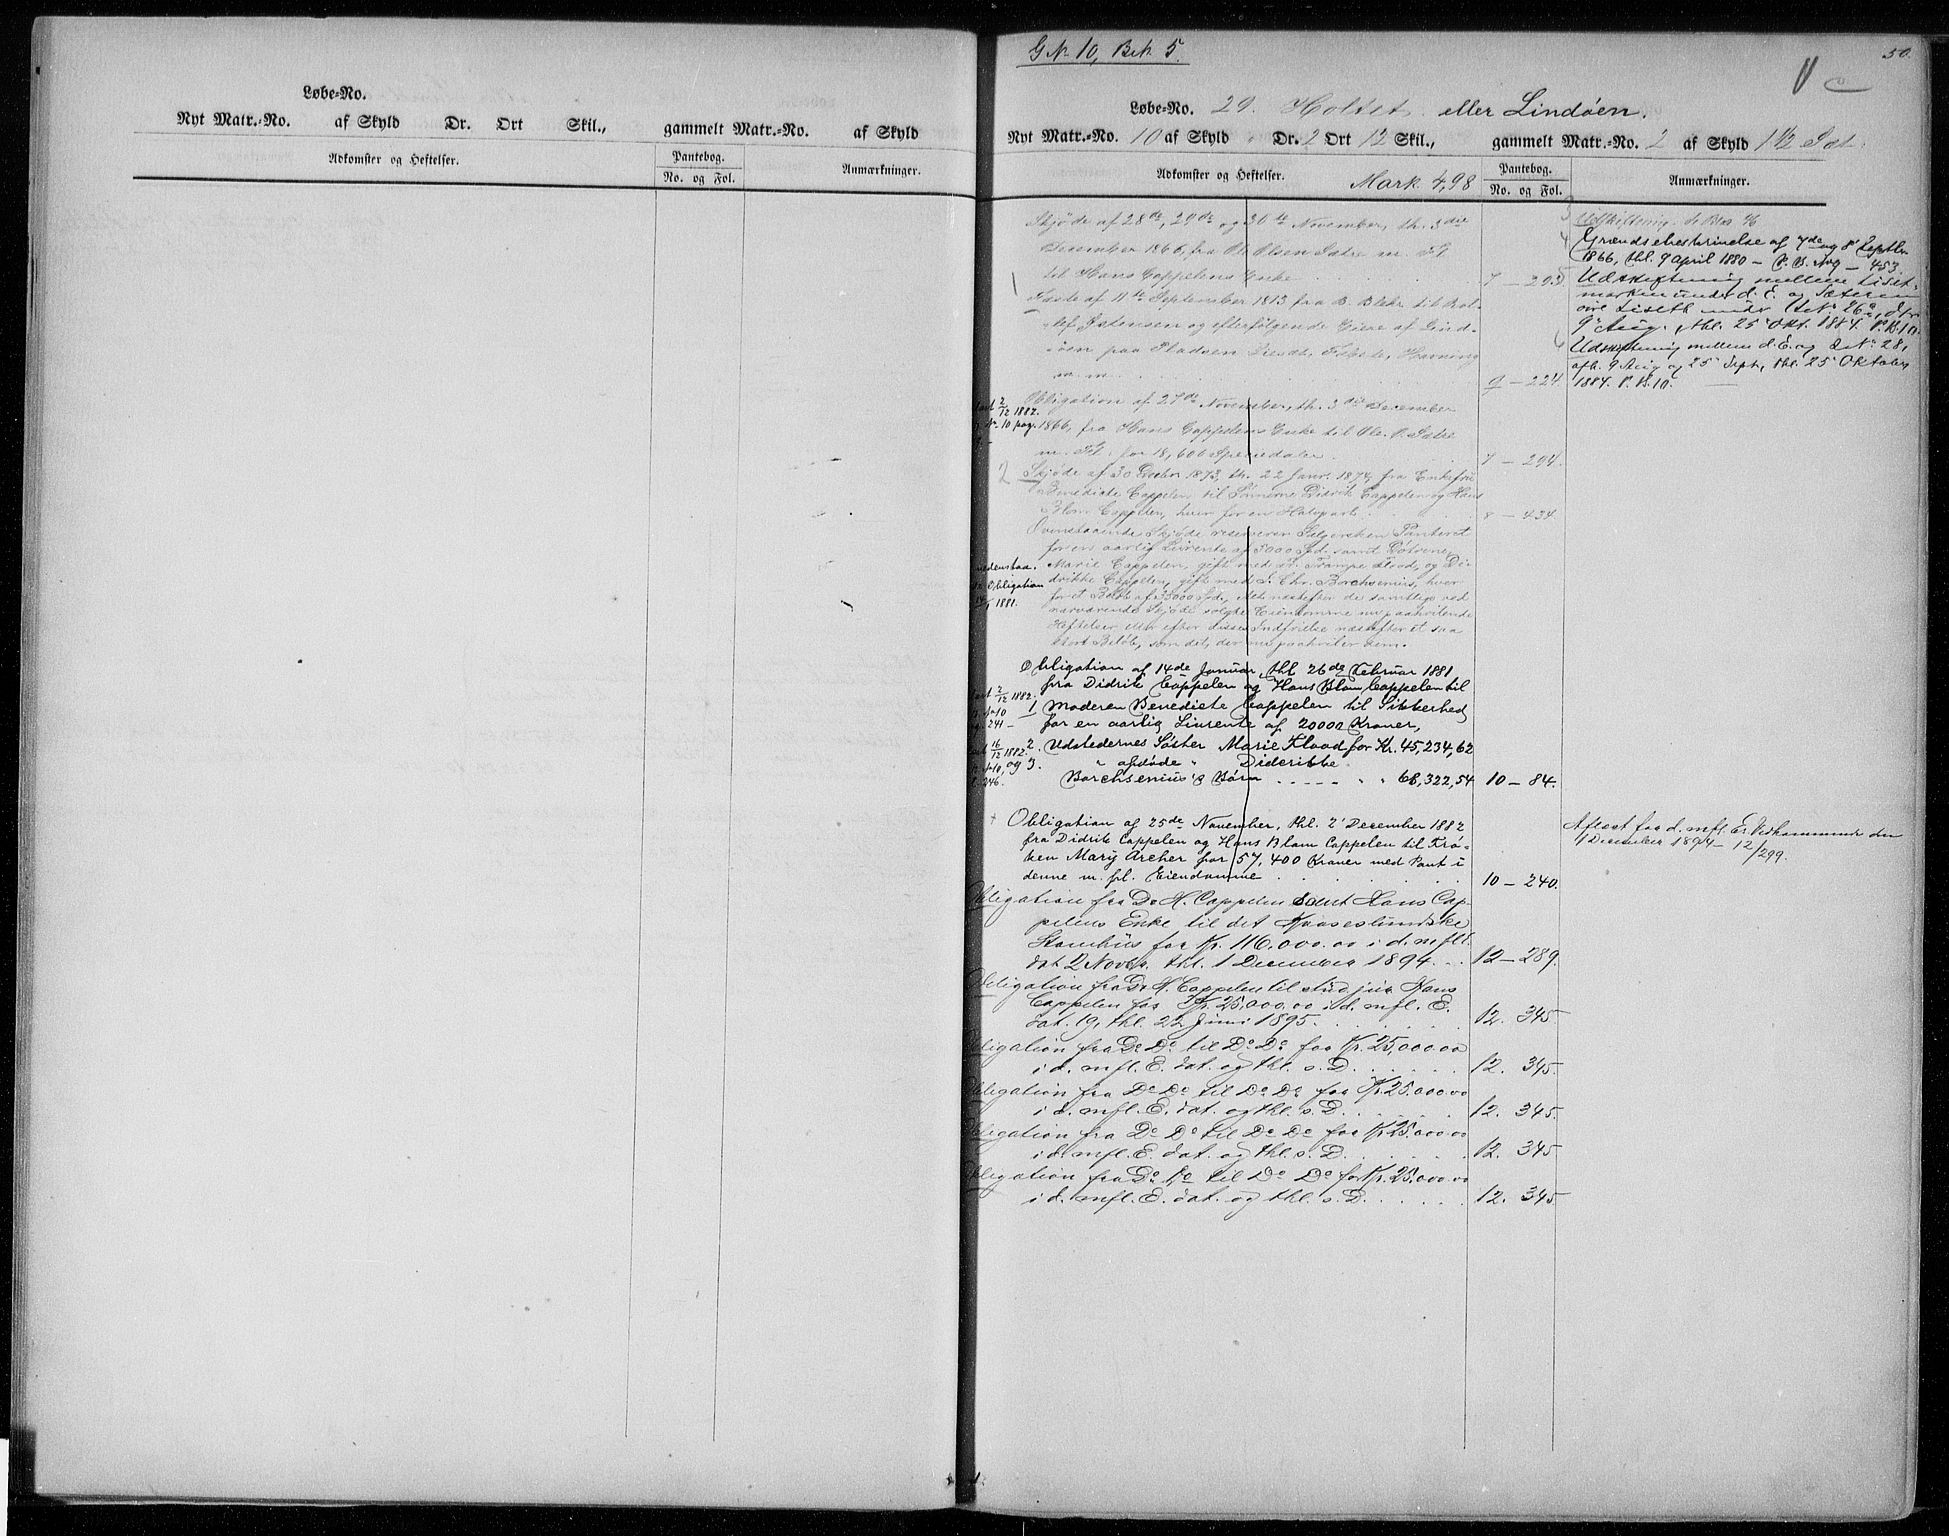 Løbe-No.
Nyt Matr.-No. af Skyld Dr. Ort Skil., gammelt Matr.-No. af Skyld
Adkomster og Heftelser.
Pantebog.
No. og Fol.
Anmærkninger.
G No 10, Bek 5.
50.
Løbe-No. 29. Holtet eller Lindøen.
Nyt Matr.-No. 10 af Skyld " Dr. 2 Ort 12 Skil., gammelt Matr.-No. 2 af Skyld 1 1/2 Sæt.
Adkomster og Heftelser. Mark 4,98
Pantebog.
No. og Fol.
Anmærkninger.
Skjøde af 28de, 29de og 30te November, th. 3die
December 1866, fra Ole Olsen Sætre m. Fl.
til Hans Cappelens Enke 7 - 293
1
Faste af 11te September 1813 fra B. Bleke til
Jstensen og efterfølgende Eiere af Lind-
øen paa Pladsen Fiske, Havning
m. m. 9 - 224
2/12 1882.
No 10 pag.
Obligation af 27de November, th. 3die December
1866, fra Hans Cappelens Enke til Ole O. Sætre
m. Fl. for 18,600 Speciedaler 7 - 294.
2 Skjøde af 30 Decbr 1873, th. 22 Janr. 1874, fra Enkefru
Benedicte Cappelen til Sønnerne Didrik Cappelen og Hans
Blom Cappelen, hver for en Halvpart 8 - 434.
Ovenstaaende Skjøde reserverer Sælgersken Panteret
for en aarlig Livrente af 5000 Spd. samt Døtrene
Marie Cappelen, gift med Fr. Trampe Flood, og Di-
drikke Cappelen, gift med S. Chr. Borchsenius, hver
for et Beløb af 35000 Spd., Alt næstefter de samtlige ved
nærværende Skjøde solgte Eiendomme nu paahvilende
Heftelser eller efter disses Indfrielse næstefter et saa
stort Beløb, som det, der nu paahviler dem.
nedenstaa.
Obligation
1881.
Obligation af 14de Januar, thl 26de Februar 1881
fra Didrik Cappelen og Hans Blom Cappelen til
1 Moderen Benedicte Cappelen til Sikkerhed
for en aarlig Livrente af 20000 Kroner,
2/12 1882.
No 10
241 -
2. Udstedernes Søster Marie Flood for Kr. 45,234,62
og 3. " afdøde " Diderikke
Borchsenius's Børn " " 68,322,54 10 - 84.
16/12 1882
No 10,
246.
+ Obligation af 25de November, thl. 2' December 1882
fra Didrik Cappelen og Hans Blom Cappelen til Frø-
ken Mary Archer for 57,400 Kroner med Pant i
denne m. fl. Eiendomme 10 - 240.
Obligation fra D. H. Cappelen samt Hans Cap-
pelens Enke til det
Stamhus for Kr. 116,000.00 i d. mfl E.
dat 2 Novbr. thl. 1 December 1894. 12 - 289.
Obligation fra D. H. Cappelen til stud jur. Hans
Cappelen for Kr. 25,000.00 i d. mfl. E.
dat. 19, thl. 22 Juni 1895. 12. 345
Obligation fra Do Do til Do Do for Kr. 25,000 00
i d. mfl. E. dat. og thl. s. D. 12. 345.
Obligation fra Do Do til Do Do for Kr. 25.000.00
i d. mfl. E. dat. og thl. s. D. 12. 345.
Obligation fra Do Do til Do Do for Kr. 25.000 00
i d. mfl. E. dat. og thl. s. D. 12. 345
Obligation fra Do Do til Do Do for Kr. 25.000.00
i d. mfl. E. dat. og thl. s. D. 12. 345
3 Udskiftning
4 Grændsebeskrivelse af 7de og 8' Septbr
1866, thl. 9 April 1880 - P. B. No 9 - 453.
5 Udskiftning mellem Liset-
marken under d. E. og Sæteren
øvre Liseth under LNo 26a, afh.
9' Aug., thl. 25' Okt. 1884. P. B. 10.
6 Udskiftning mellem d. E. og LNo 28,
afh. 9 Aug og 25' Sept, thl. 25' Oktober
1884. P. B. 10.
Aflæst for d. mfl. E. Vedkommende den
1 December 1894 - 12/299.